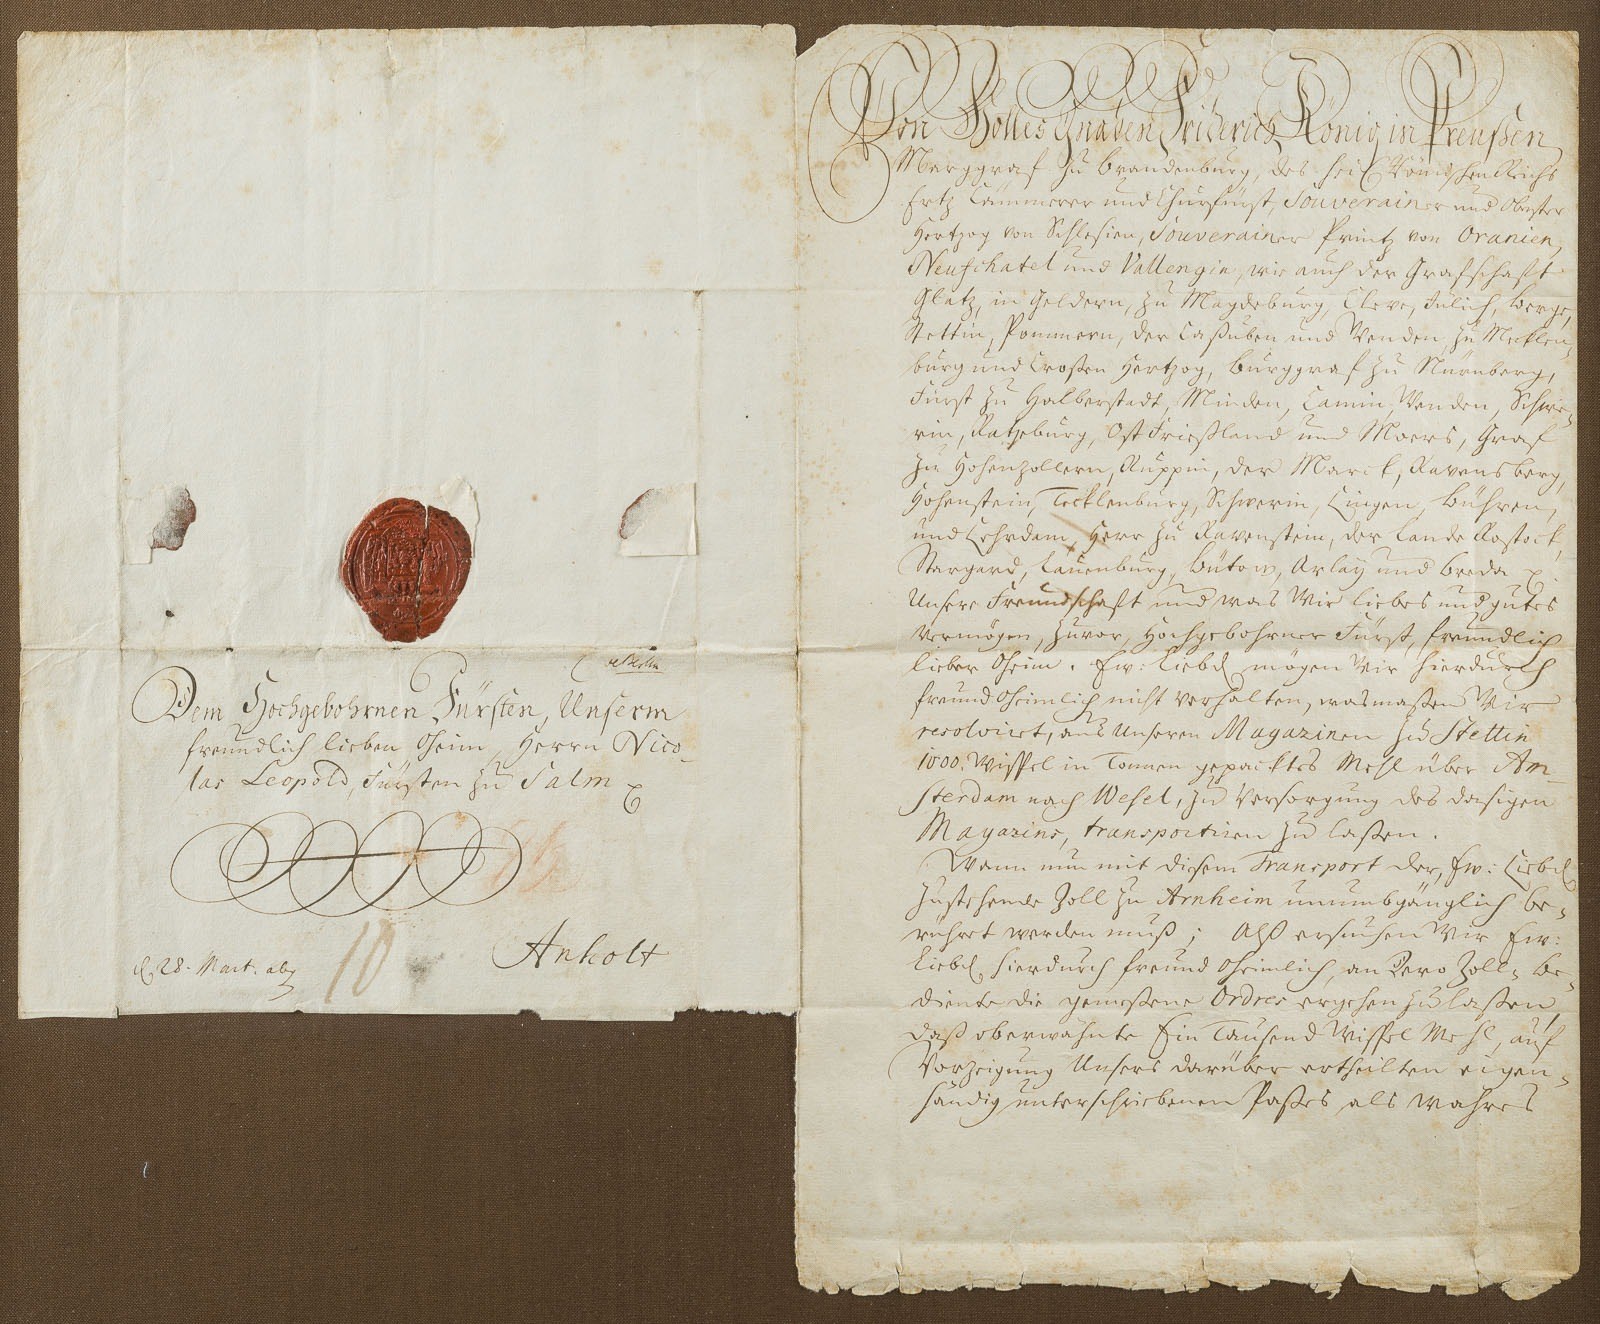 de Berlin
Dem Hochgebohrnen Fürsten, Unserm
freundlich lieben Oheim, Herrn Nico-
las Leopold, Fürsten zu Salm
10
Anholt
d. 28. Mart.
Von Gottes Gnaden Friderich König in Preußen,
Marggraf zu Brandenburg, des heil. Römischen Reichs
Ertz Cämmerer und Churfürst, Souverainer und Obrister
Hertzog von Schlesien, Souverainer Printz von Oranien,
Neufchatel und Vallengin, wie auch der Grafschafft
Glatz, in Geldern, zu Magdeburg, Cleve, Jülich, Berge,
Stettin, Pommern, der Caßuben und Wenden, zu Mecklen-
burg und Croßen Hertzog, Burggraf zu Nürnberg,
Fürst zu Halberstadt, Minden, Camin, Wenden, Schwe-
rin, Ratzeburg, Ost Frießland und Moers, Graf
zu Hohenzollern, Ruppin, der Marck, Ravensberg,
Hohenstein, Tecklenburg, Schwerin, Lingen, Bühren,
und Lehrdam, Herr zu Ravenstein, der Lande Rostock,
Stargard, Lauenburg, Bütow, Arlay und Breda
Unsere Freundschaft und was Wir liebes und gutes
vermögen, zuvor, Hochgebohrner Fürst, freundlich
lieber Oheim. Ew: Liebd. mögen Wir hierdurch
freund Oheimlich nicht verhalten, wasmaßen Wir
resolviert, aus Unseren Magazinen zu Stettin
1000. Wispel in Tonnen gepacktes Mehl über Am-
sterdam nach Wesel, zu Versorgung des dasigen
Magazins, transportiren zu laßen.
Wann nun mit diesem Transport der, Ew: Liebd.
zustehende Zoll zu Arnheim unumbgänglich be-
rühret werden muß; Alß ersuchen Wir Ew:
Liebd. hierdurch freund Oheimlich, an Dero Zoll-Be-
diente die gemeßene Ordres ergehen zu laßen,
daß oberwähnte Ein Tausend Wispel Mehl, auf
Vorzeigung Unsers darüber ertheilten eigen-
händig unterschriebenen Paßes als wahres